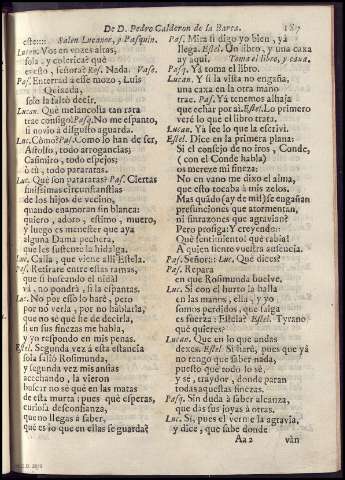 De D. Pedro Calderon de la Barca. 187
este:::: Salen Lucanor, y Pasquin.
Lucan. Vos en vozes altas,
sola, y colerica? què
es esto, señora? Ros. Nada. Vase.
Pas. Enterrad à esse mozo, Luis
Quixada,
solo la faltò decir.
Lucan. Què melancolia tan rata
trae consigo? Pasq. No me espanto,
si novio à disgusto aguarda.
Luc. Còmo? Pasq. Como lo han de ser,
Astolfos, todo arrogancias;
Casimiro, todo espejos;
ò tu, todo pararatas.
Luc. Què son pararatas? Pas. Ciertas
finissimas circunstancias
de los hijos de vecino,
quando enamoran sin blanca:
quiero, adoro, estimo, muero,
y luego es menester que aya
alguna Dama pechera,
que les sustente la hidalga.
Luc. Calla, que viene alli Estela.
Pas. Retirate entre estas ramas,
que si buscando el nidal
và, no pondrà, si la espantas.
Luc. No por esso lo harè, pero
por no verla, por no hablarla,
que no se què he de decirla,
si en sus finezas me habla,
y yo respondo en mis penas.
Estel. Segunda vez à esta estancia
sola saliò Rosimunda,
y segunda vez mis ansias
acechando, la vieron
bolver no sè què en las matas
de esta murta: pues què esperas,
curiosa desconfianza,
que no llegas à saber,
què es lo que en ellas se guarda?
Pas. Mira si digo yo bien, yà
llega. Estel. Un libro, y una caxa
ay aqui. Toma el libro, y caxa.
Pasq. Yà toma el libro.
Lucan. Y si la vista no engaña,
una caxa en la otra mano
trae. Pas. Yà tenemos alhaja
que echar por ai. Estel. Lo primero
verè lo que el libro trata.
Lucan. Yà lee lo que la escrivì.
Estel. Dice en la primera plana:
Si el consejo de no iros, Conde,
(con el Conde habla)
os merece mi fineza:
No en vano me dixo el alma,
que esto tocaba à mis zelos.
Mas quàdo (ay de mi!) se engañan
presunciones que atormentan,
ni sinrazones que agravian?
Pero prosiga: Y creyendo::
Què sentimiento! què rabia!
A quien siento vuestra ausencia.
Pas. Señora: Luc. Què dices?
Pas. Repara
en que Rosimunda buelve.
Luc. Si con el hurto la halla
en las manos, ella, y yo
somos perdidos, que salga
es fuerza: Estela? Estel. Tyrano
què quieres?
Lucan. Que en lo que andas
dexes. Estel. Si harè, pues que yà
no tengo que saber nada,
puesto que todo lo sè,
y sè, traydor, donde paran
todas aquestas finezas.
Pasq. Sin duda à saber alcanza,
que das sus joyas à otras.
Luc. Si, pues el verme la agravia,
y dice, que sabe donde
Aa 2 vàn